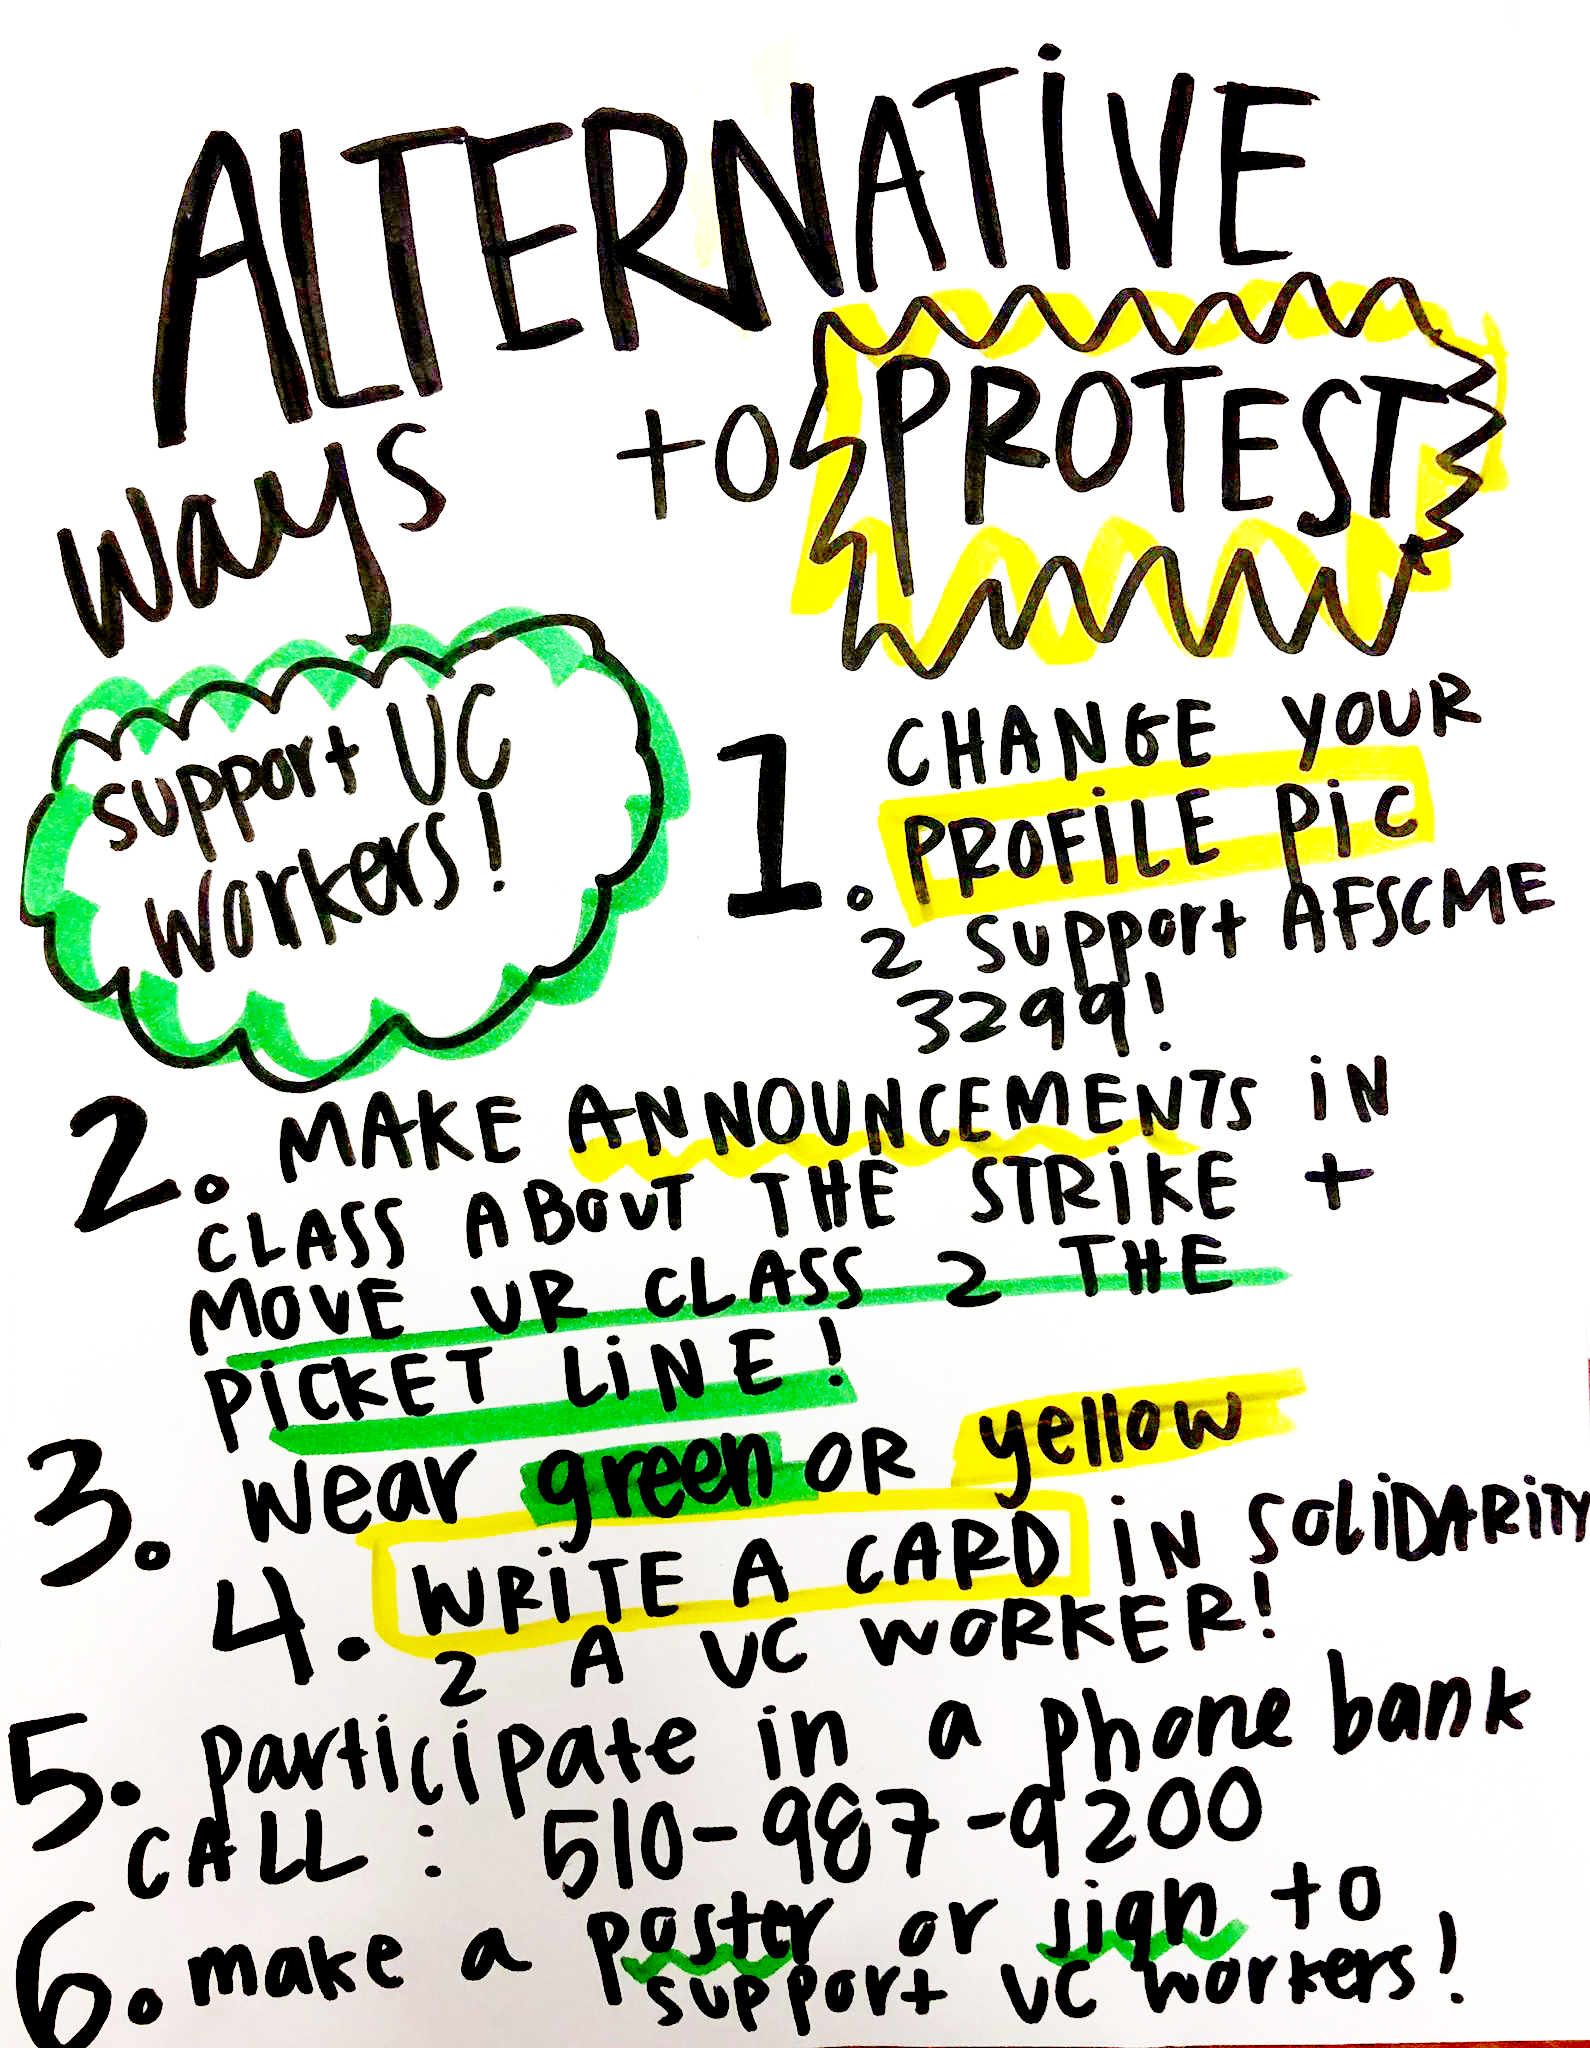 ALTERNATIVE
ways to PROTEST
support UC
workers!
1. CHANGE YOUR
PROFILE PIC
2 support AFSCME
3299!
2. MAKE ANNOUNCEMENTS IN
CLASS ABOUT THE STRIKE +
MOVE UR CLASS 2 THE
PICKET LINE!
3. wear green OR yellow
4. WRITE A CARD IN SOLIDARITY
2 A UC WORKER!
5. participate in a phone bank
CALL: 510-987-9200
6. make a poster or sign to
support UC workers!